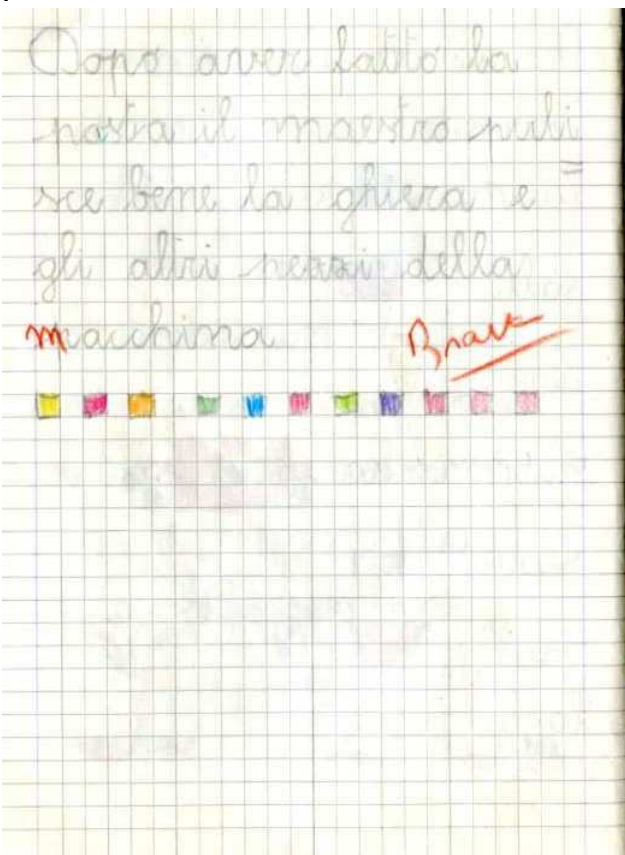 Dopo aver fatto la
pasta il maestro puli=
sce bene la ghiera e
gli altri pezzi della
macchina
Brava